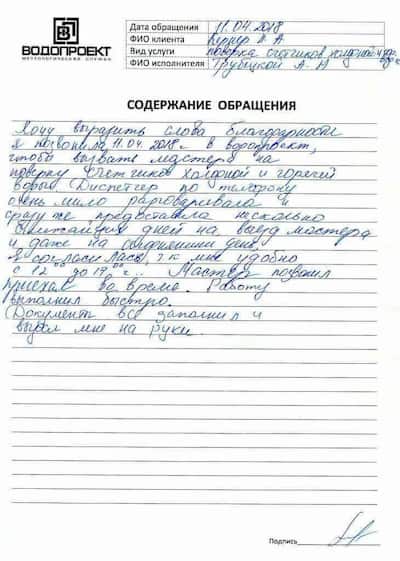 ВОДОПРОЕКТ
МЕТРОЛОГИЧЕСКАЯ СЛУЖБА
Дата обращения 11.04.2018
ФИО клиента Лернер А А
Вид услуги поверка счетчиков холодной и гор.
ФИО исполнителя Трубецкой А. А
СОДЕРЖАНИЕ ОБРАЩЕНИЯ
Хочу выразить слова благодарности
я позвонила 11.04.2018 г в водопроект,
чтобы вызвать мастера на
поверку счетчиков холодной и горячей
воды. Диспетчер по телефону
очень мило разговаривала и
сразу же предоставила несколько
ближайших дней на выезд мастера
и даже на сегодняшний день.
Я согласилась, т.к мне удобно
с 12 00 до 19 00 г.. Мастер позвонил
приехал во время. Работу
выполнил быстро.
Документы все заполнил и
выдал мне на руки.
Подпись